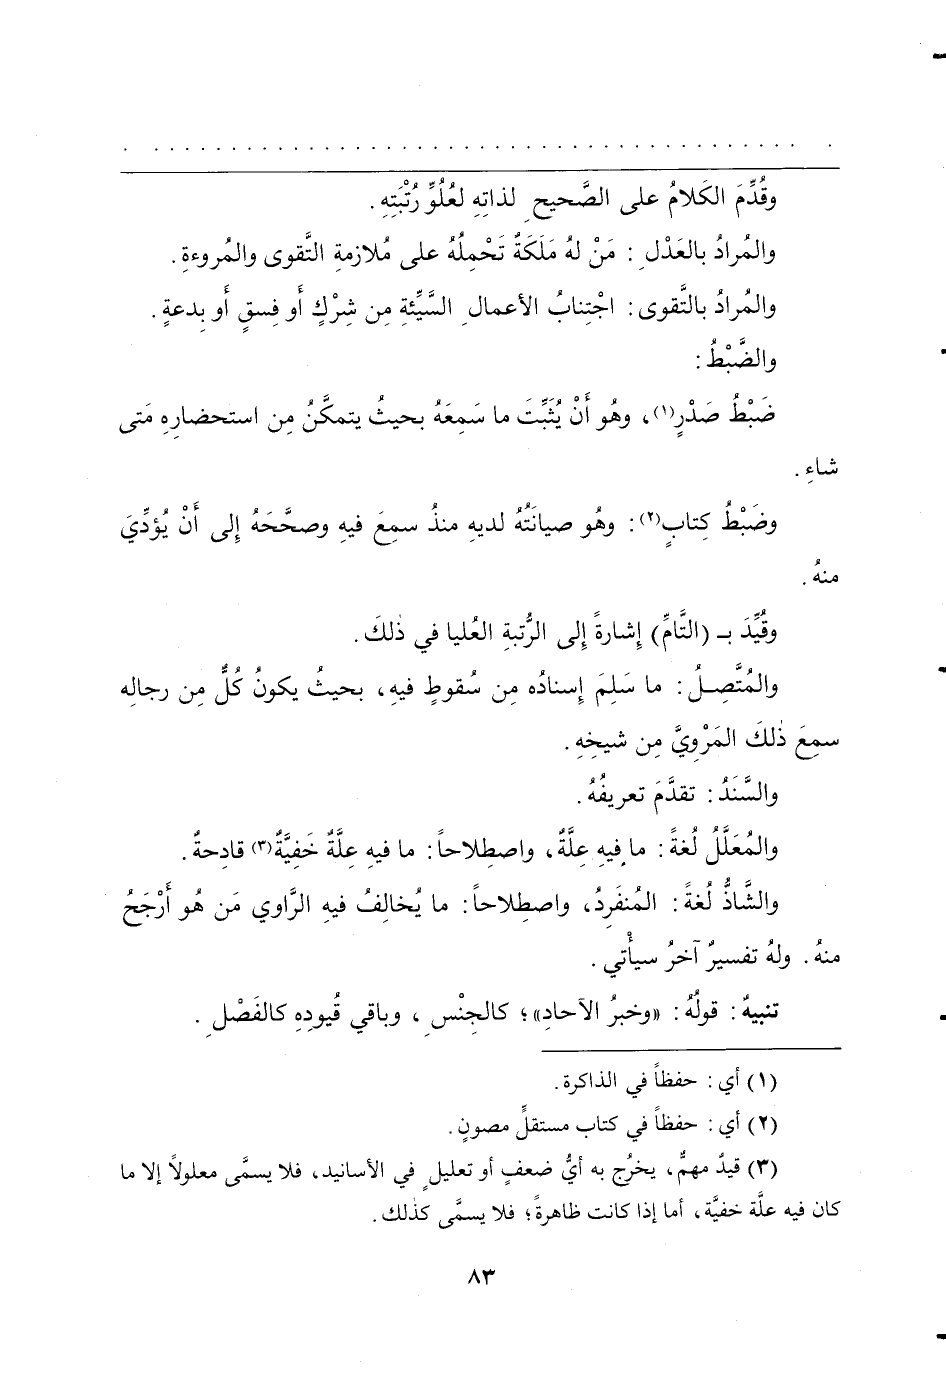 وقُدِّمَ الكَلامُ على الصَّحيحِ لذاتِهِ لعُلُوِّ رُتْبَتِهِ.
والمُرادُ بالعَدْلِ: مَنْ لهُ مَلَكَةٌ تَحْمِلُهُ على مُلازمةِ التَّقوى والمُروءةِ.
والمُرادُ بالتَّقوى: اجْتِنابُ الأعمالِ السَّيِّئةِ مِن شِرْكٍ أَو فِسقٍ أَو بِدعةٍ.
والضَّبْطُ:
ضَبْطُ صَدْرٍ(١)، وهُو أَنْ يُثَبِّتَ ما سَمِعَهُ بحيثُ يتمكَّنُ مِن استحضارِهِ مَتى
شاءِ.
وضَبْطُ كِتابٍ(٢): وهُو صيانَتُهُ لديهِ منذُ سمِعَ فيهِ وصحَّحَهُ إِلى أَنْ يُؤدِّيَ
منهُ.
وقُيِّدَ بـ (التَّامِّ) إِشارةً إِلى الرُّتبةِ العُليا في ذٰلكَ.
والمُتَّصِلُ: ما سَلِمَ إِسنادُه مِن سُقوطٍ فيهِ، بحيثُ يكونُ كُلٌّ مِن رجالِه
سمِعَ ذٰلكَ المَرْوِيَّ مِن شيخِهِ.
والسَّنَدُ: تقدَّمَ تعريفُهُ.
والمُعَلَّلُ لُغةً: ما فِيهِ عِلَّةٌ، واصطِلاحاً: ما فيهِ عِلَّةٌ خَفِيَّةٌ(٣) قادِحةٌ.
والشَّاذُّ لُغةً: المُنفَرِدُ، واصطِلاحاً: ما يُخالِفُ فيهِ الرَّاوي مَن هُو أَرْجَحُ
منهُ. ولهُ تفسيرٌ آخرُ سيأْتي.
تنبيهٌ: قولُهُ: «وخبرُ الآحادِ»؛ كالجِنْسِ، وباقي قُيودِهِ كالفَصْلِ.
(١) أي: حفظاً في الذاكرة.
(٢) أي: حفظاً في كتاب مستقلٍّ مصونٍ.
(٣) قيدٌ مهمٌّ، يخرُج به أيُّ ضعفٍ أو تعليلٍ في الأسانيد، فلا يسمَّى معلولاً إلا ما
كان فيه علَّة خفيَّة، أما إذا كانت ظاهرةً؛ فلا يسمَّى كذلك.
٨٣